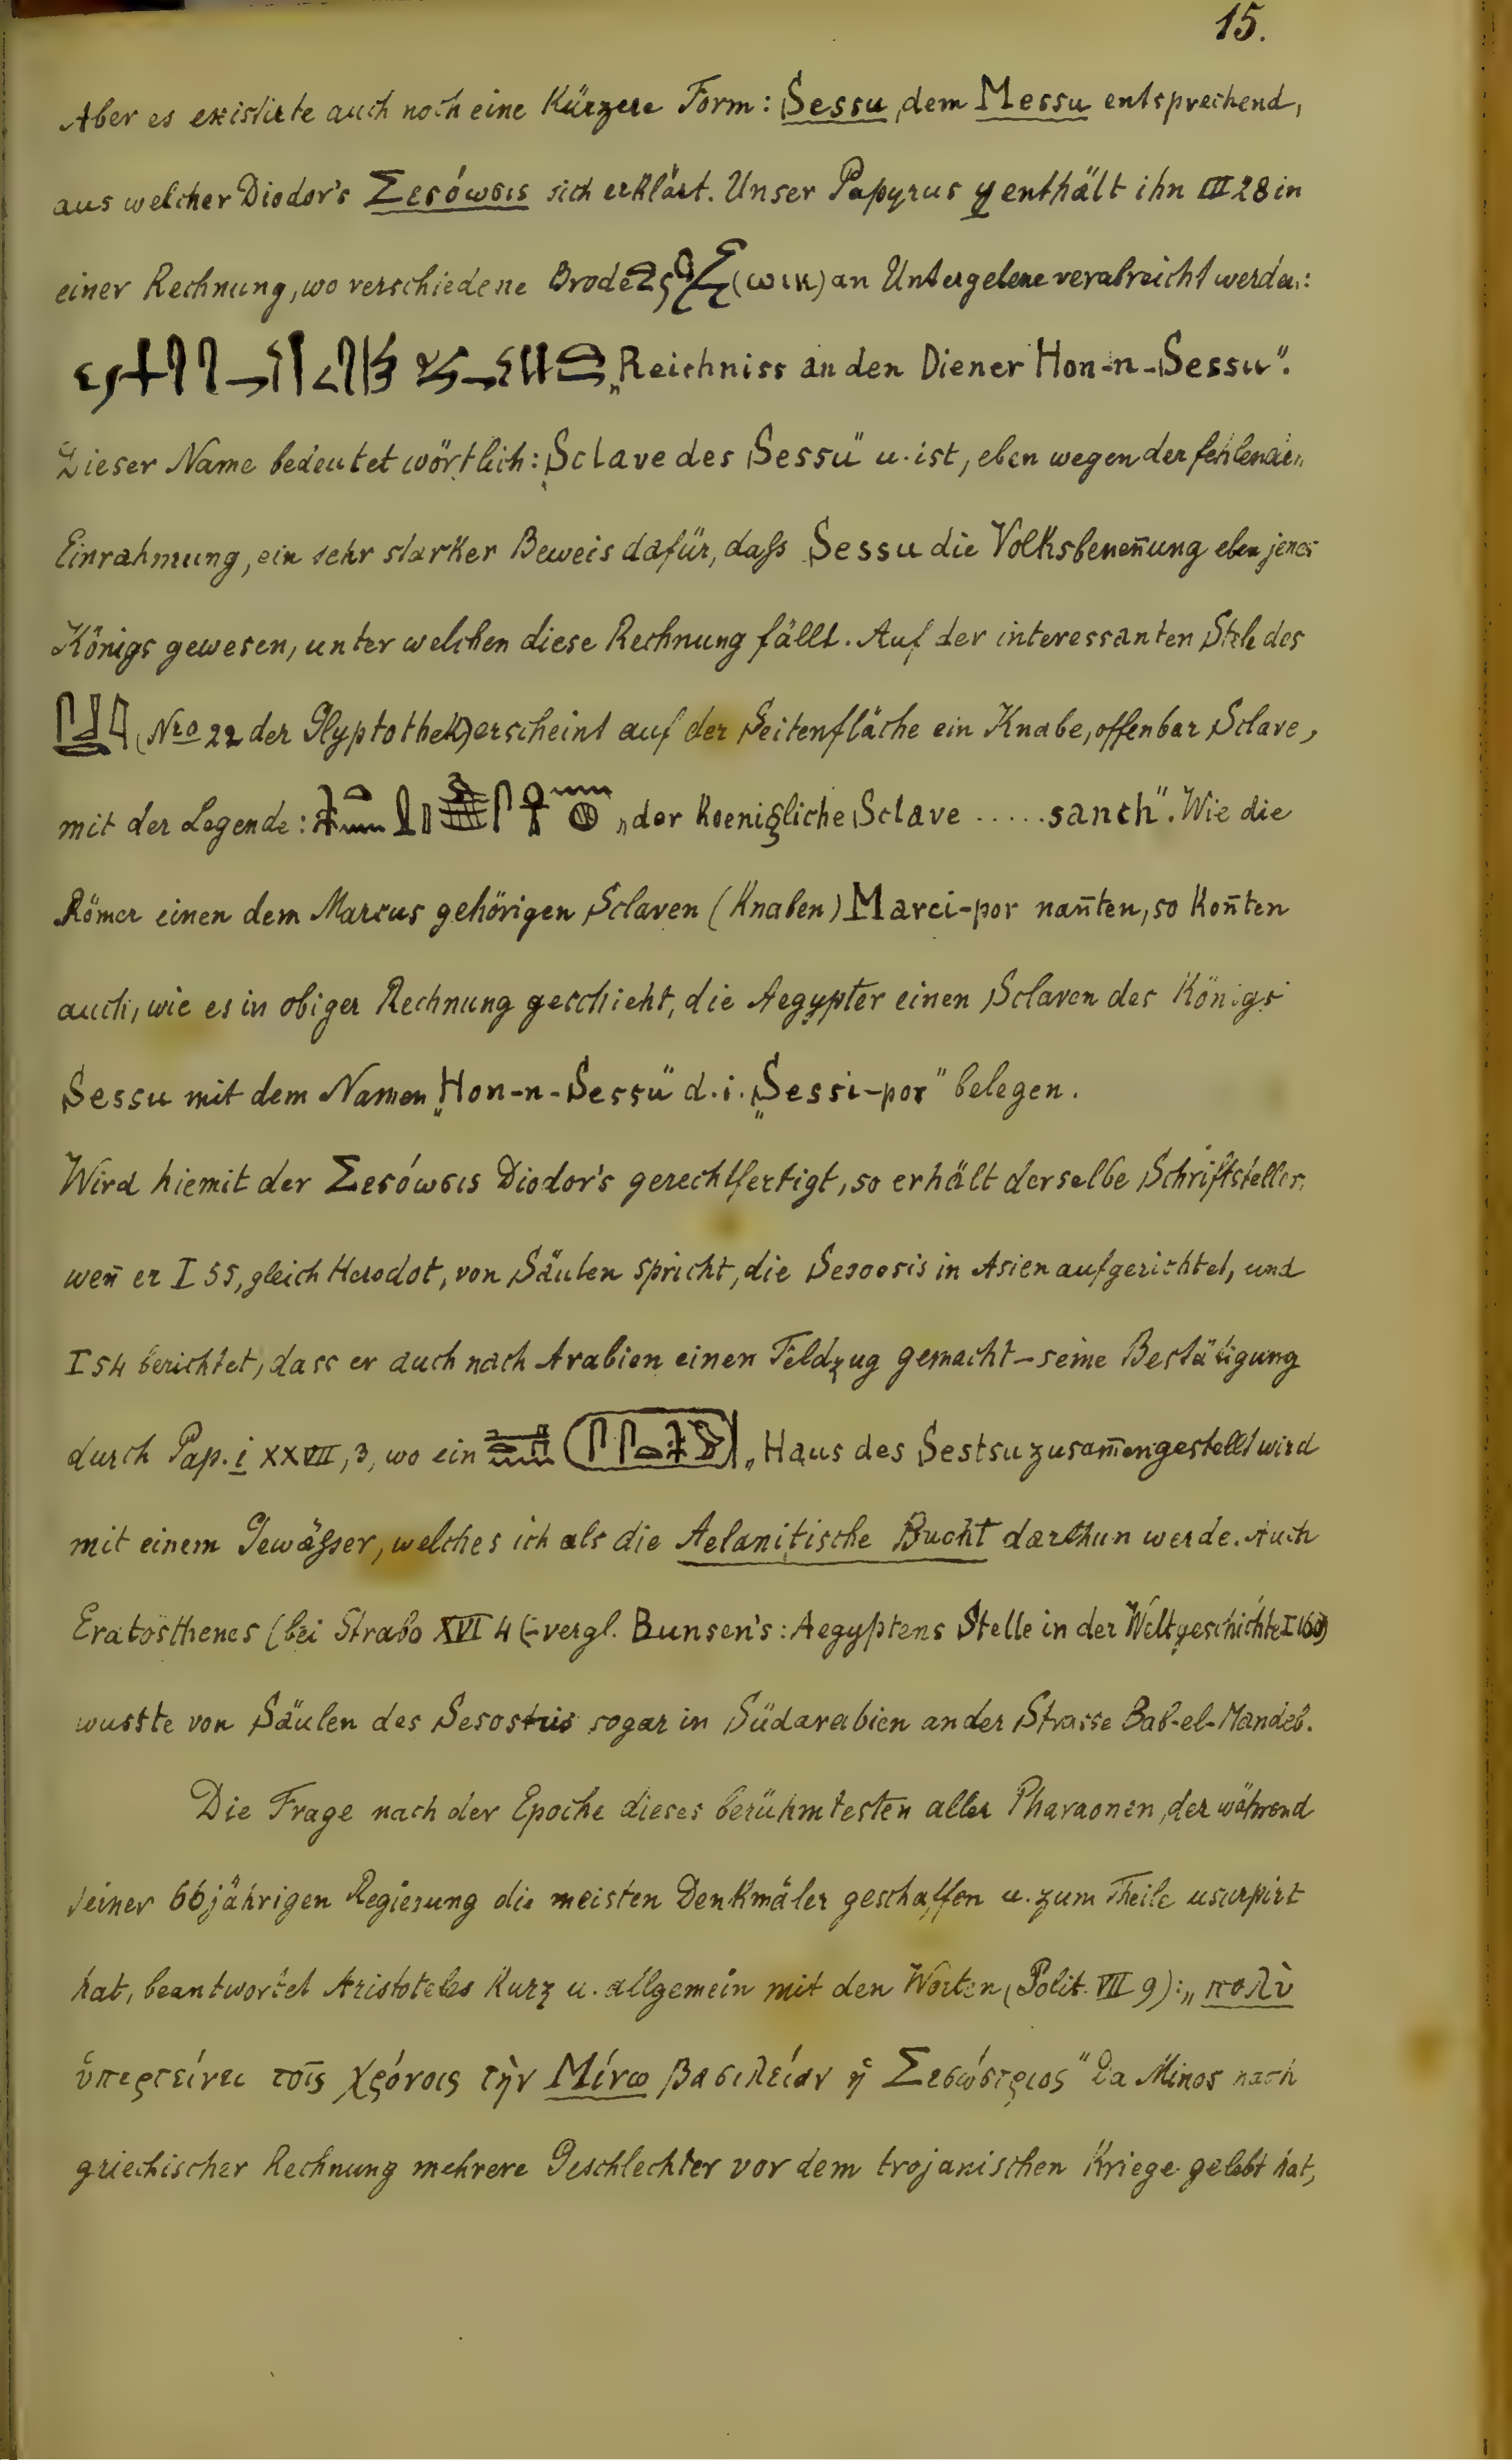 15.
Aber es existirte auch noch eine Kürzere Form: Sessu, dem Messu entsprechend,
aus welcher Diodor's Σεσόωσις sich erklärt. Unser Papyrus y enthält ihn III 28 in
einer Rechnung, wo verschiedene Brode (ωικ) an Untergebene verabreicht werden:
„Reichniss an den Diener Hon-n-Sessu".
Dieser Name bedeutet wörtlich: „Sclave des Sessu" u. ist, eben wegen der fehlenden
Einrahmung, ein sehr starker Beweis dafür, daſs Sessu die Volksbeneñung eben jenes
Königs gewesen, unter welchen diese Rechnung fällt. Auf der interessanten Stele des
(Nro 22 der Glyptothek) erscheint auf der Seitenfläche ein Knabe, offenbar Sclave,
mit der Legende: „der Koenigliche Sclave ..... sanch". Wie die
Römer einen dem Marcus gehörigen Sclaven (Knaben) Marci-por nañten, so Koñten
auch, wie es in obiger Rechnung geschieht, die Aegypter einen Sclaven des Königs
Sessu mit dem Namen „Hon-n-Sessu" d. i. „Sessi-por" belegen.
Wird hiemit der Σεσόωσις Diodor's gerechtfertigt, so erhält derselbe Schriftsteller,
weñ er I 55, gleich Herodot, von Säulen spricht, die Sesoosis in Asien aufgerichtet, und
I 54 berichtet, dass er auch nach Arabien einen Feldzug gemacht – seine Bestätigung
durch Pap. i XXVII, 3, wo ein „Haus des Sestsu zusam̄engestellt wird
mit einem Gewäſser, welches ich als die Aelanitische Bucht darthun werde. Auch
Eratosthenes (bei Strabo XVI 4 (– vergl. Bunsen's: Aegyptens Stelle in der Weltgeschichte I 160)
wusste von Säulen des Sesostris sogar in Südarabien an der Strasse Bab-el-Mandeb.
Die Frage nach der Epoche dieses berühmtesten aller Pharaonen, der während
seiner 66jährigen Regierung die meisten Denkmäler geschaffen u. zum Theile usurpirt
hat, beantwortet Aristoteles Kurz u. allgemein mit den Worten (Polit. VII 9): „πολὺ
ὑπερτείνει τοῖς χρόνοις τὴν Μίνω βασιλείαν ἡ Σεσώστριος" Da Minos nach
griechischer Rechnung mehrere Geschlechter vor dem trojanischen Kriege gelebt hat,